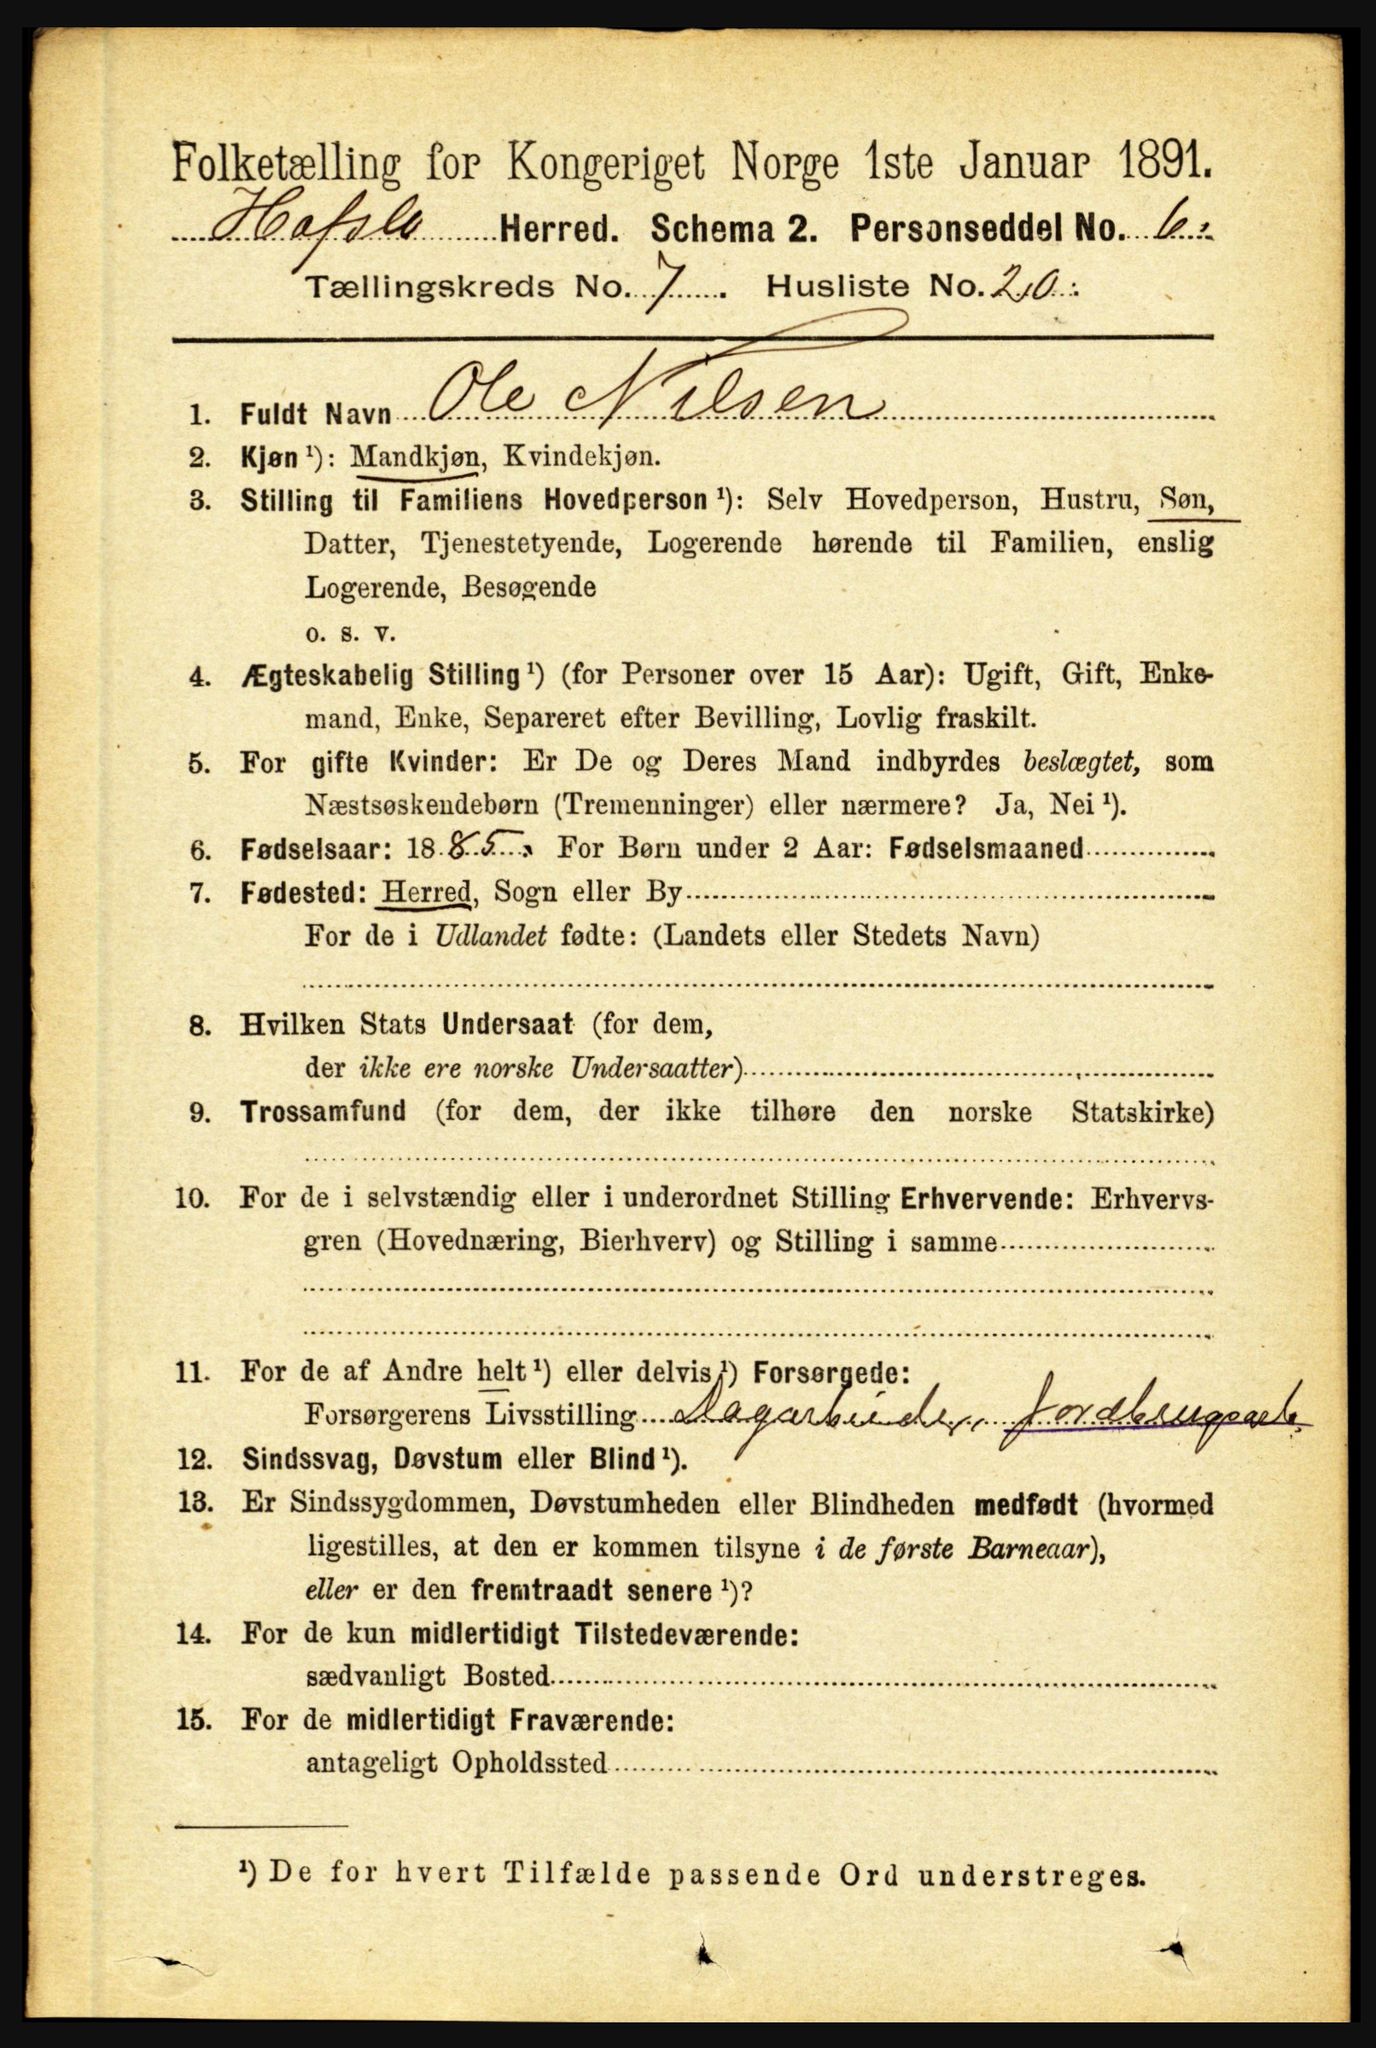 Folketælling for Kongeriget Norge 1ste Januar 1891.
Hafslo Herred. Schema 2. Personseddel No. 6.
Tællingskreds No. 7. Husliste No. 20.
1. Fuldt Navn Ole Nilsen
2. Kjøn ¹): Mandkjøn, Kvindekjøn.
3. Stilling til Familiens Hovedperson ¹): Selv Hovedperson, Hustru, Søn,
Datter, Tjenestetyende, Logerende hørende til Familien, enslig
Logerende, Besøgende
o. s. v.
4. Ægteskabelig Stilling ¹) (for Personer over 15 Aar): Ugift, Gift, Enke-
mand, Enke, Separeret efter Bevilling, Lovlig fraskilt.
5. For gifte Kvinder: Er De og Deres Mand indbyrdes beslægtet, som
Næstsøskendebørn (Tremenninger) eller nærmere? Ja, Nei ¹).
6. Fødselsaar: 1885. For Børn under 2 Aar: Fødselsmaaned
7. Fødested: Herred, Sogn eller By
For de i Udlandet fødte: (Landets eller Stedets Navn)
8. Hvilken Stats Undersaat (for dem,
der ikke ere norske Undersaatter)
9. Trossamfund (for dem, der ikke tilhøre den norske Statskirke)
10. For de i selvstændig eller i underordnet Stilling Erhvervende: Erhvervs-
gren (Hovednæring, Bierhverv) og Stilling i samme
11. For de af Andre helt ¹) eller delvis ¹) Forsørgede:
Forsørgerens Livsstilling Dagarbeider, Jordbrugsarb.
12. Sindssvag, Døvstum eller Blind ¹).
13. Er Sindssygdommen, Døvstumheden eller Blindheden medfødt (hvormed
ligestilles, at den er kommen tilsyne i de første Barneaar),
eller er den fremtraadt senere ¹)?
14. For de kun midlertidigt Tilstedeværende:
sædvanligt Bosted
15. For de midlertidigt Fraværende:
antageligt Opholdssted
¹) De for hvert Tilfælde passende Ord understreges.